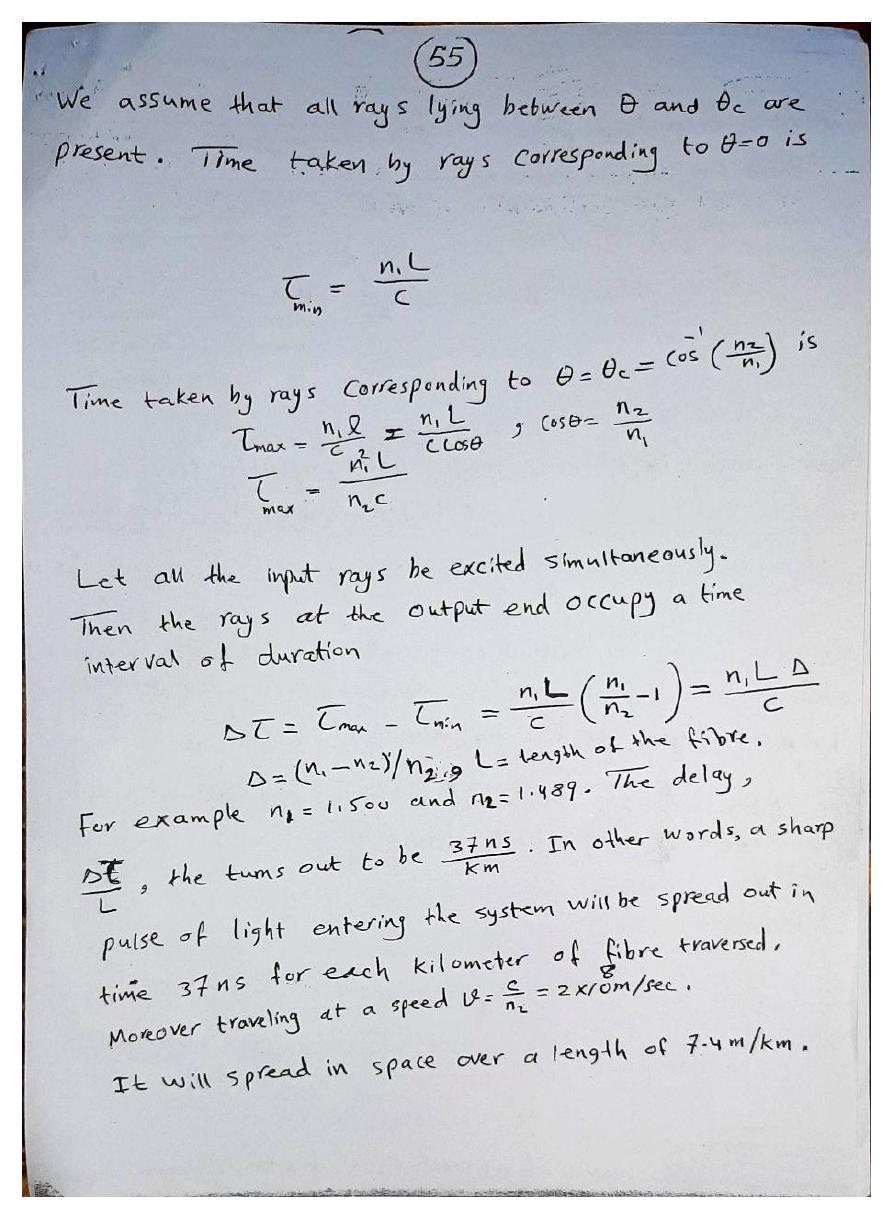 55
We assume that all rays lying between θ and θc are
present. Time taken by rays corresponding to θ=0 is
τmin = n₁L/C
Time taken by rays corresponding to θ = θc = cos⁻¹(n₂/n₁) is
τmax = n₁l/C = n₁L/C cosθ , cosθ = n₂/n₁
τmax = n₁²L/n₂C
Let all the input rays be excited simultaneously.
Then the rays at the output end occupy a time
interval of duration
Δτ = τmax - τmin = n₁L/C (n₁/n₂ -1) = n₁LΔ/C
Δ = (n₁-n₂)/n₂, L = length of the fibre.
For example n₁ = 1.500 and n₂ = 1.489. The delay,
Δτ/L , the turns out to be 37ns/km . In other words, a sharp
pulse of light entering the system will be spread out in
time 37ns for each kilometer of fibre traversed.
Moreover traveling at a speed v = c/n₂ = 2×10⁸m/sec.
It will spread in space over a length of 7.4m/km.